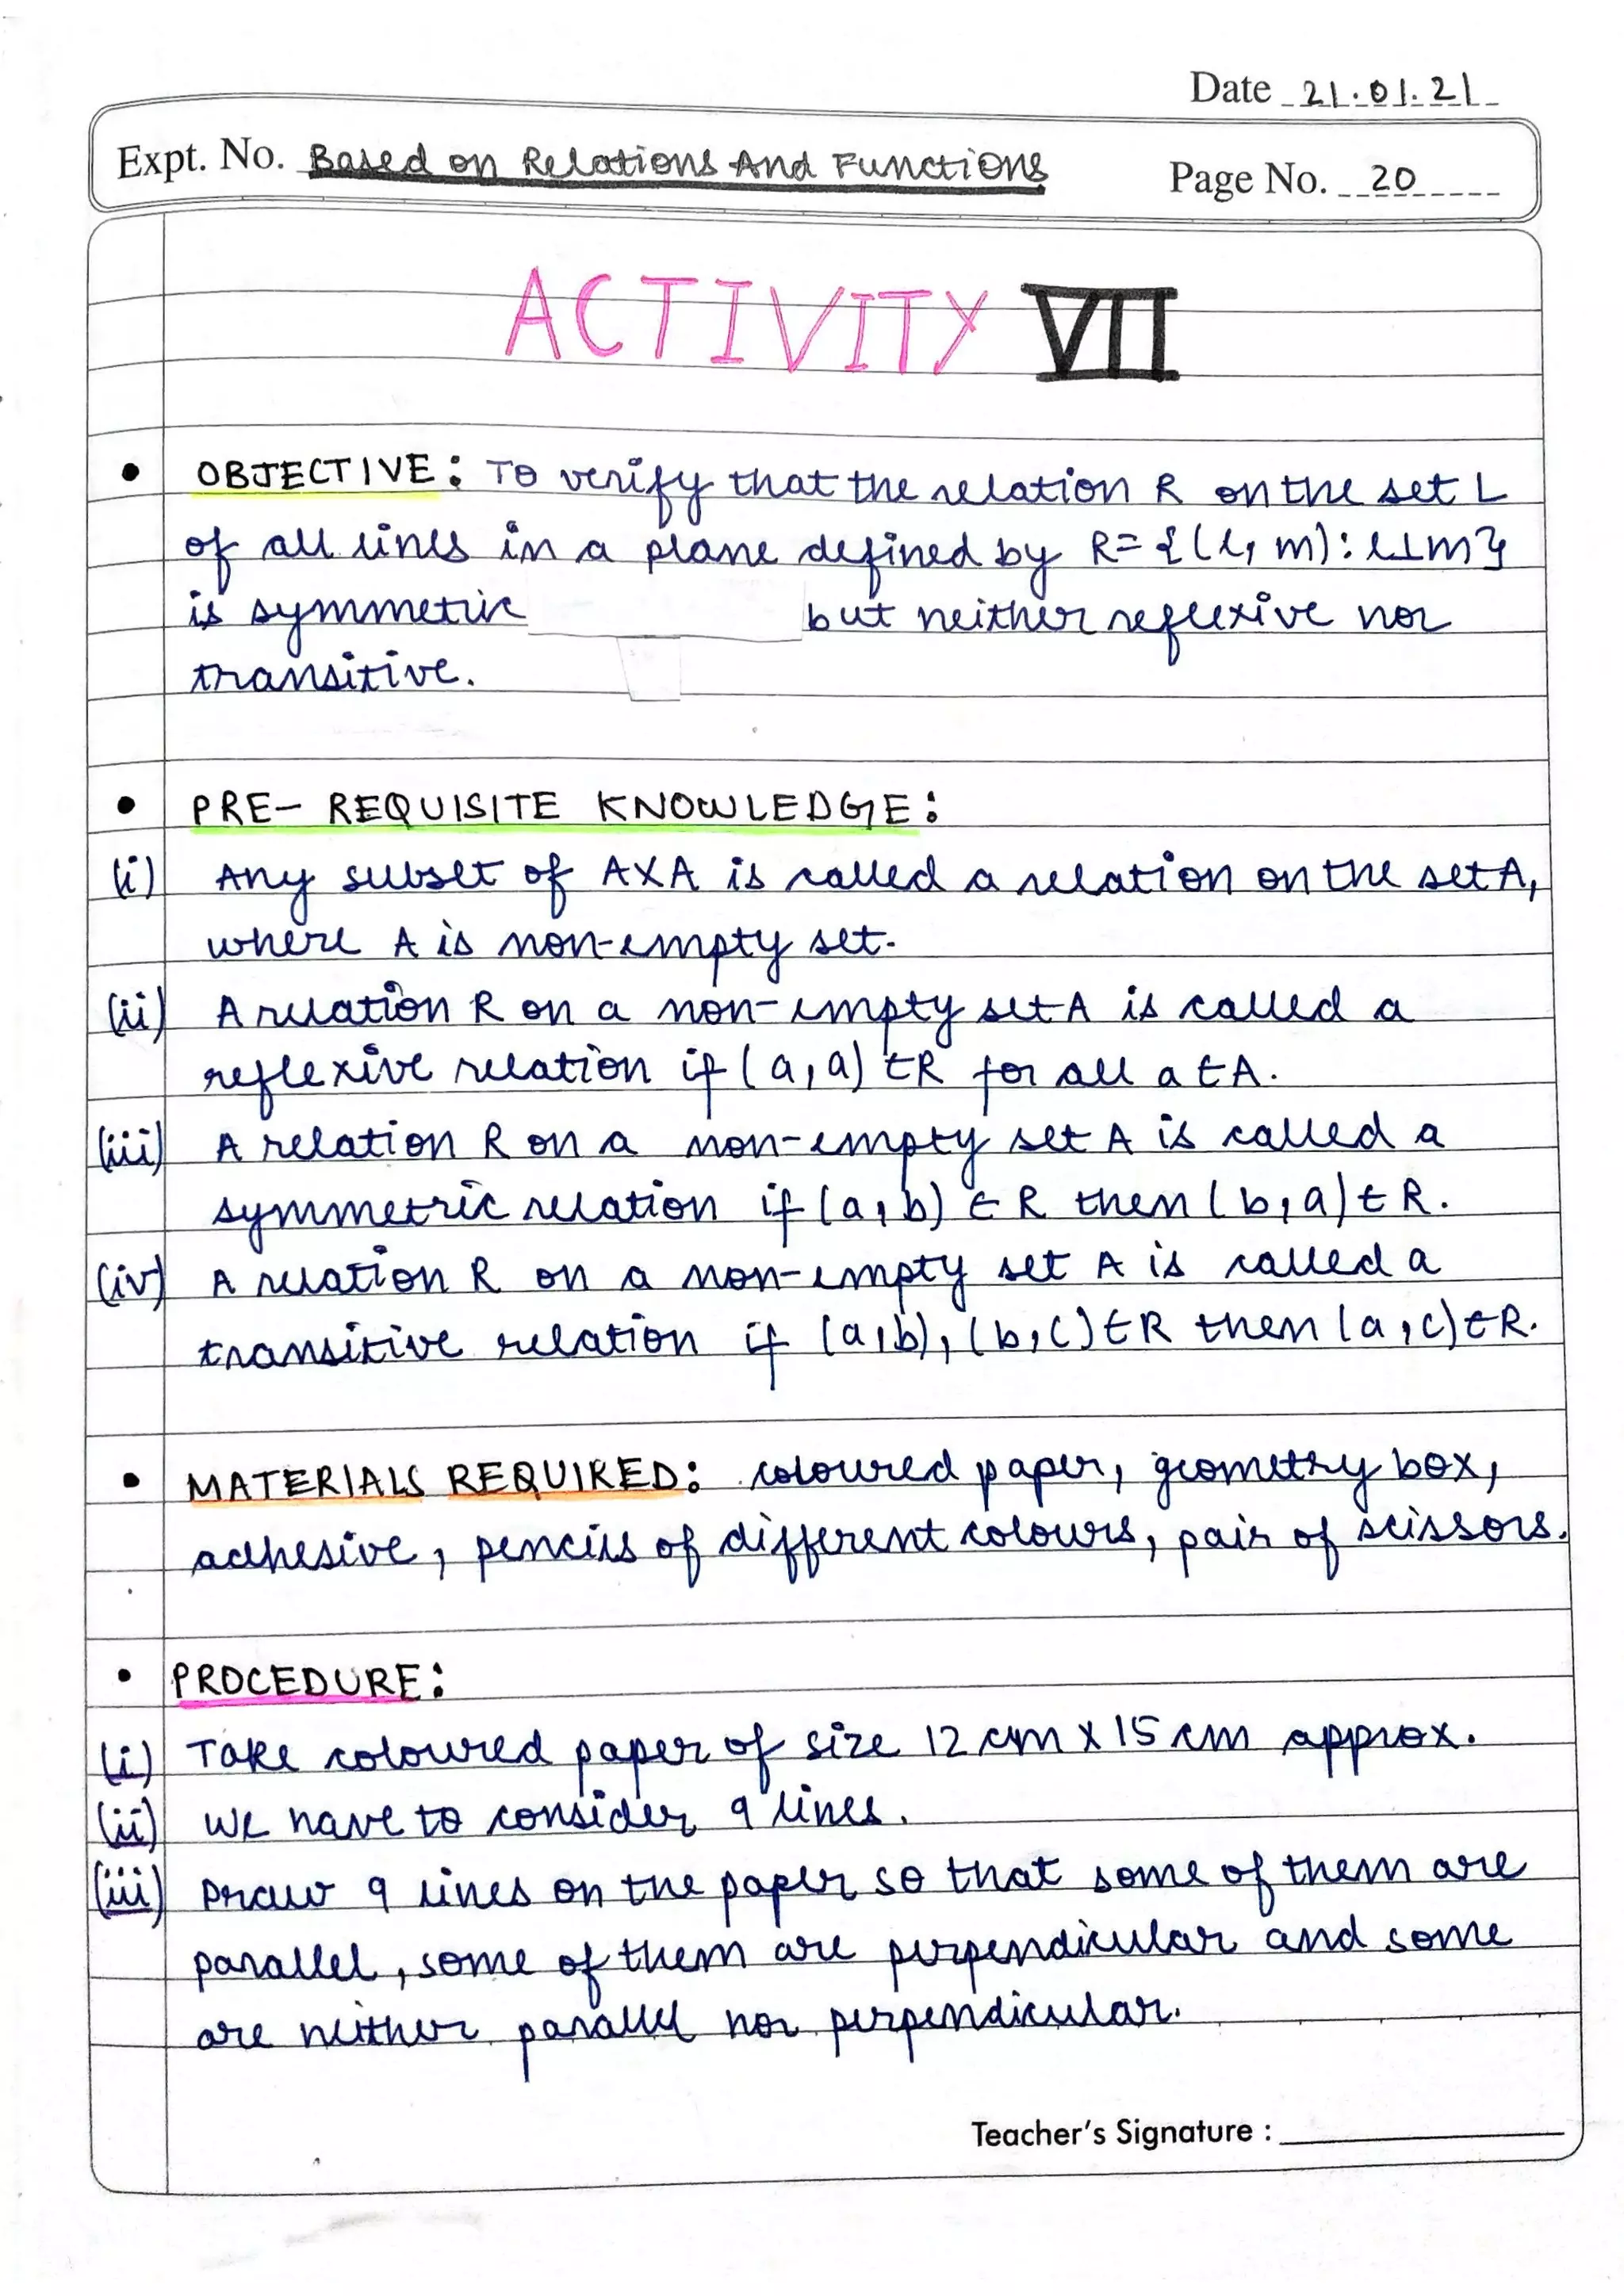 Date 21.01.21
Expt. No. Based on Relations And Functions
Page No. 20
ACTIVITY VII
• OBJECTIVE: To verify that the relation R on the set L
of all lines in a plane defined by R= {(l, m): l⊥m}
is symmetric but neither reflexive nor
transitive.
• PRE- REQUISITE KNOWLEDGE:
(i) Any subset of AXA is called a relation on the set A,
where A is non-empty set.
(ii) A relation R on a non-empty set A is called a
reflexive relation if (a,a) ∈R for all a∈A.
(iii) A relation R on a non-empty set A is called a
symmetric relation if (a,b) ∈ R then (b,a)∈R.
(iv) A relation R on a non-empty set A is called a
transitive relation if (a,b), (b,c)∈R then (a,c)∈R.
• MATERIALS REQUIRED: coloured paper, geometry box,
adhesive, pencils of different colours, pair of scissors.
• PROCEDURE:
(i) Take coloured paper of size 12 cm X 15 cm approx.
(ii) We have to consider 9 lines.
(iii) Draw 9 lines on the paper so that some of them are
parallel, some of them are perpendicular and some
are neither parallel nor perpendicular.
Teacher's Signature :